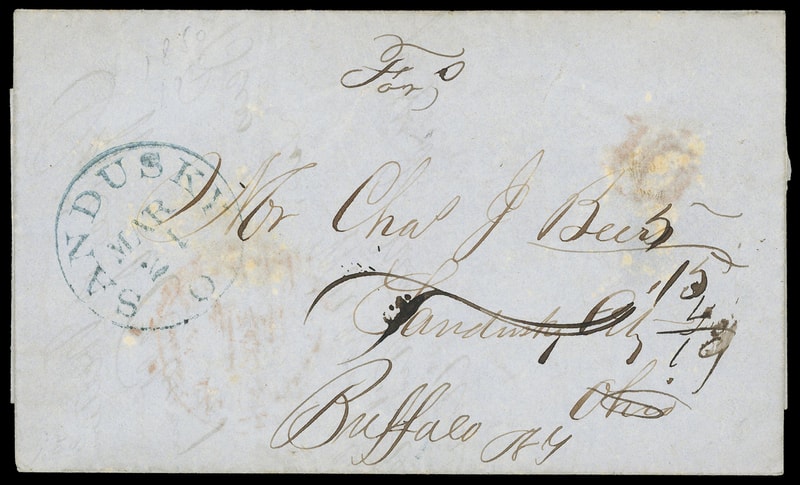 For
SANDUSKY O
MAR
Mr Chas J Beers
15
Sandusky City
4
19
Ohio
Buffalo NY